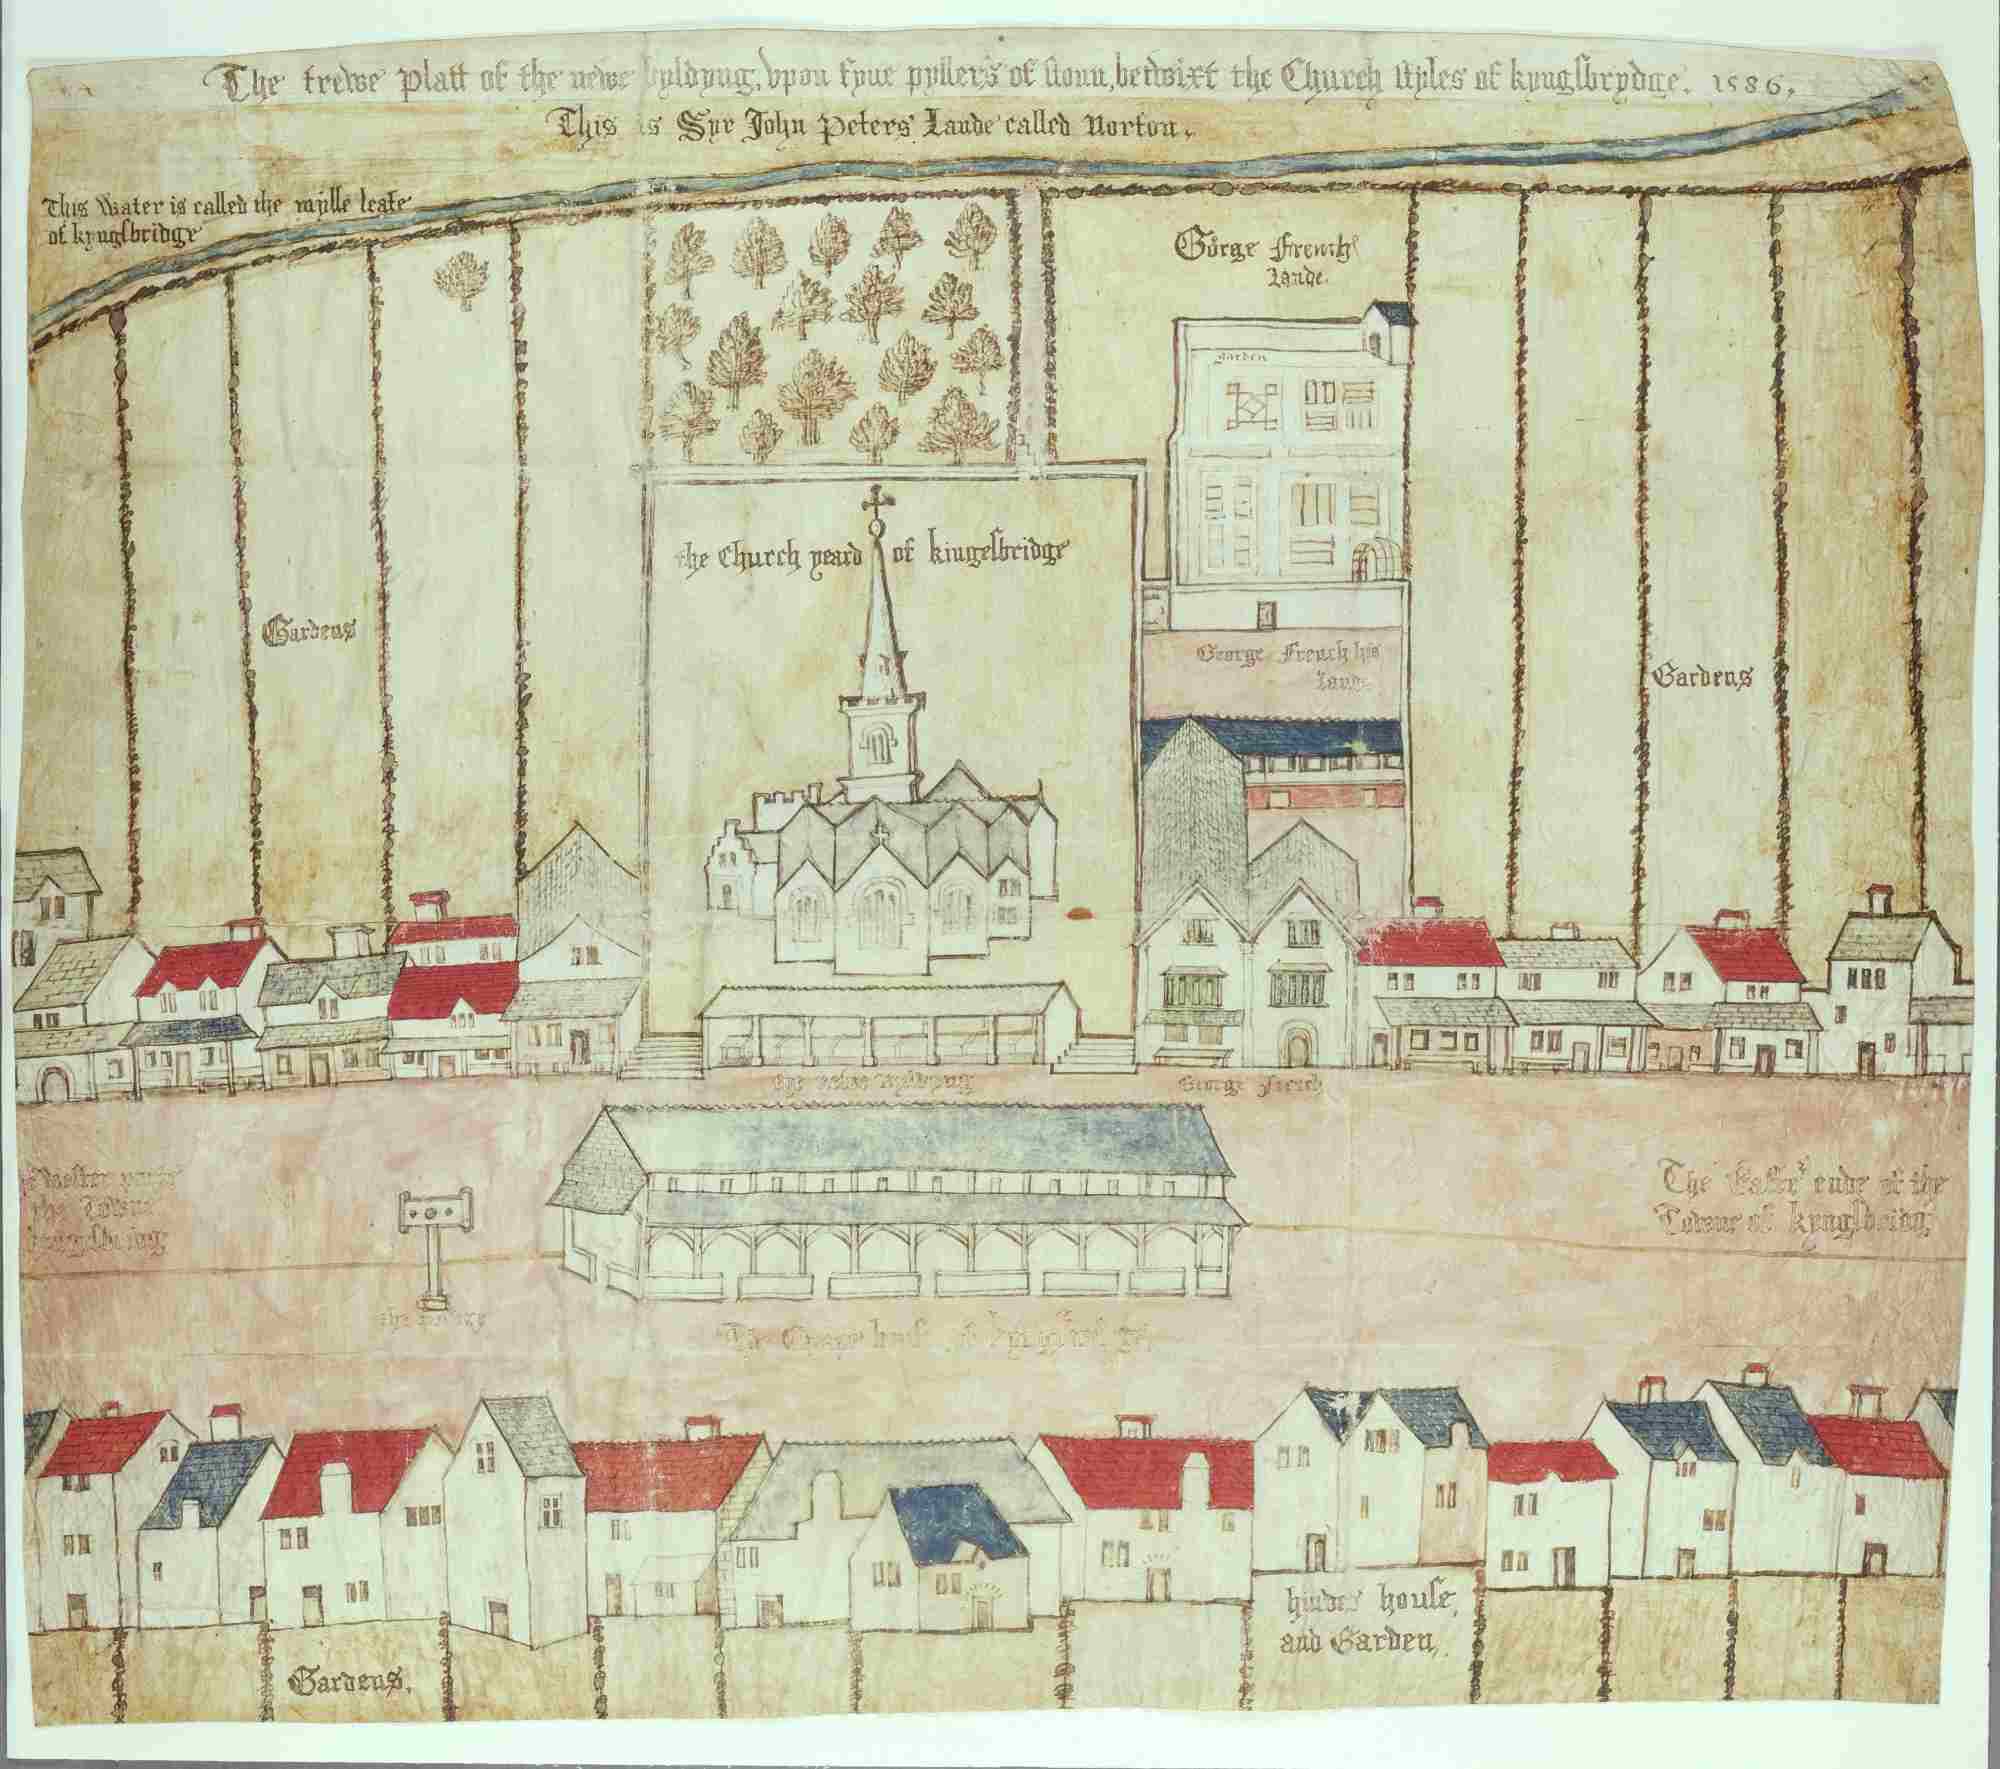 The trewe platt of the newe byldyng, vpon fyue pyllers of stonn, betwixt the Church styles of kyngsbrydge. 1586.
This is Syr John Peters Lande called Norton.
This Water is called the mylle leate
of kyngsbridge
George French
Lande.
garden
the Church yeard of kingesbridge
Gardens
George French his
Land
Gardens
the newe byldyng
George French
The Easter ende of the
Towne of kyngsbridg
Wester parte
the Towne
kyngsbridg
the
The house of
hindes house,
and Garden,
Gardens,